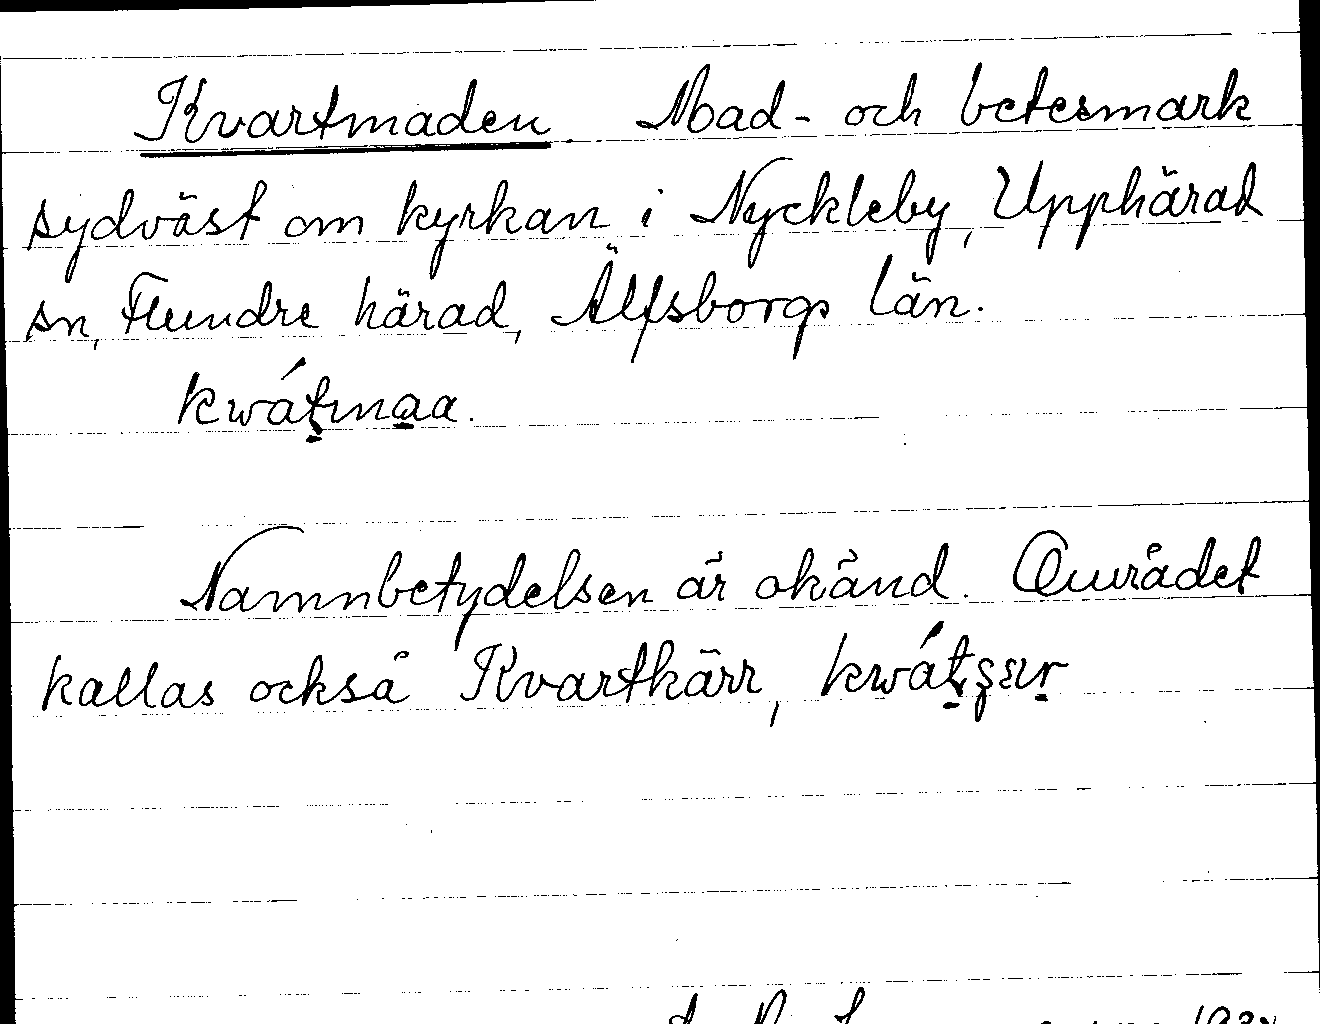 Kvartmaden. Mad- och betesmark
sydväst om kyrkan i Nyckleby, Upphärad
sn, Flundre härad, Älfsborgs län.
kwát̠ma̠a.
Namnbetydelsen är okänd. Området
kallas också Kvartkärr,